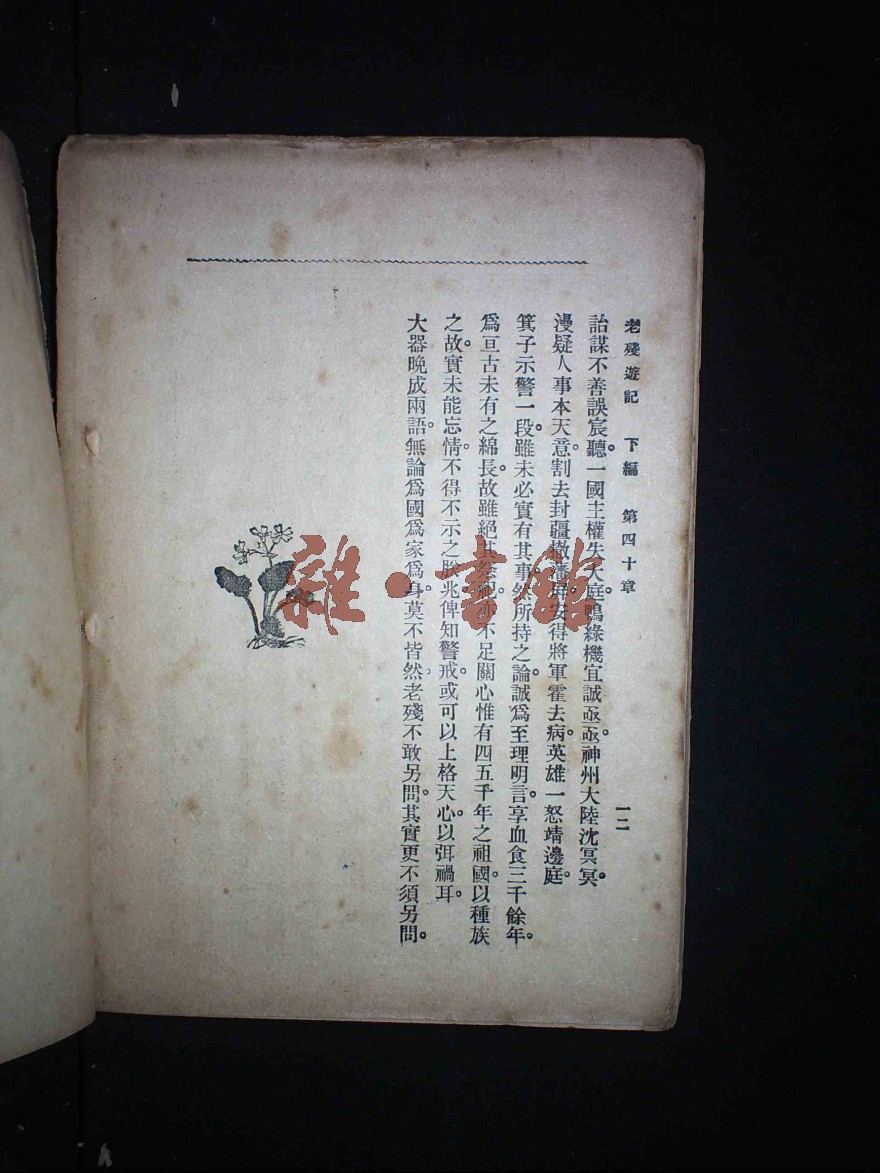 老殘遊記 下編 第四十章 一二
詒謀不善誤宸聽。一國主權失大庭。鴨綠機宜誠亟亟。神州大陸沈冥冥。
漫疑人事本天意。割去封疆撤藩屏。安得將軍霍去病。英雄一怒靖邊庭。
箕子示警一段。雖未必實有其事。然所持之論。誠爲至理明言。享血食三千餘年。
爲亘古未有之綿長。故雖絕其祭祀。亦不足關心。惟有四五千年之祖國。以種族
之故。實未能忘情。不得不示之朕兆。俾知警戒。或可以上格天心。以弭禍耳。
大器晚成兩語。無論爲國爲家爲身。莫不皆然。老殘不敢另問。其實更不須另問。
雜·書館